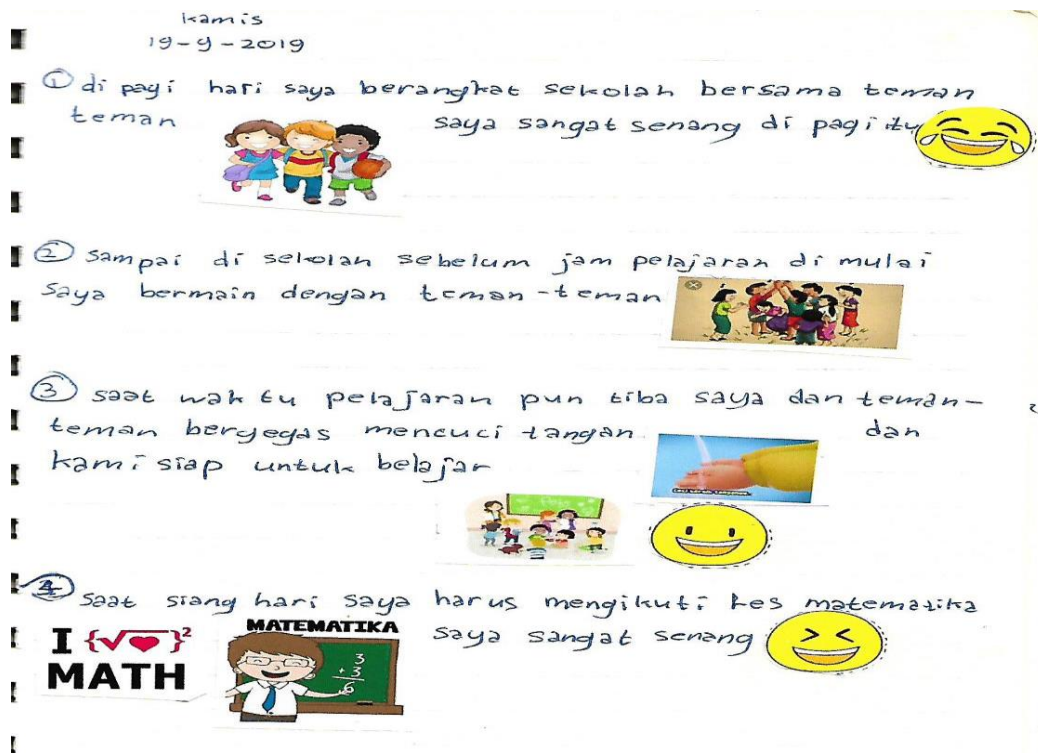 kamis
19-9-2019
① di pagi hari saya berangkat sekolah bersama teman
teman saya sangat senang di pagi itu
② sampai di sekolah sebelum jam pelajaran di mulai
saya bermain dengan teman-teman
③ saat waktu pelajaran pun tiba saya dan teman-
teman bergegas mencuci tangan dan
kami siap untuk belajar
④ saat siang hari saya harus mengikuti tes matematika
saya sangat senang
I {√♥}²
MATH
MATEMATIKA
3
+3
6